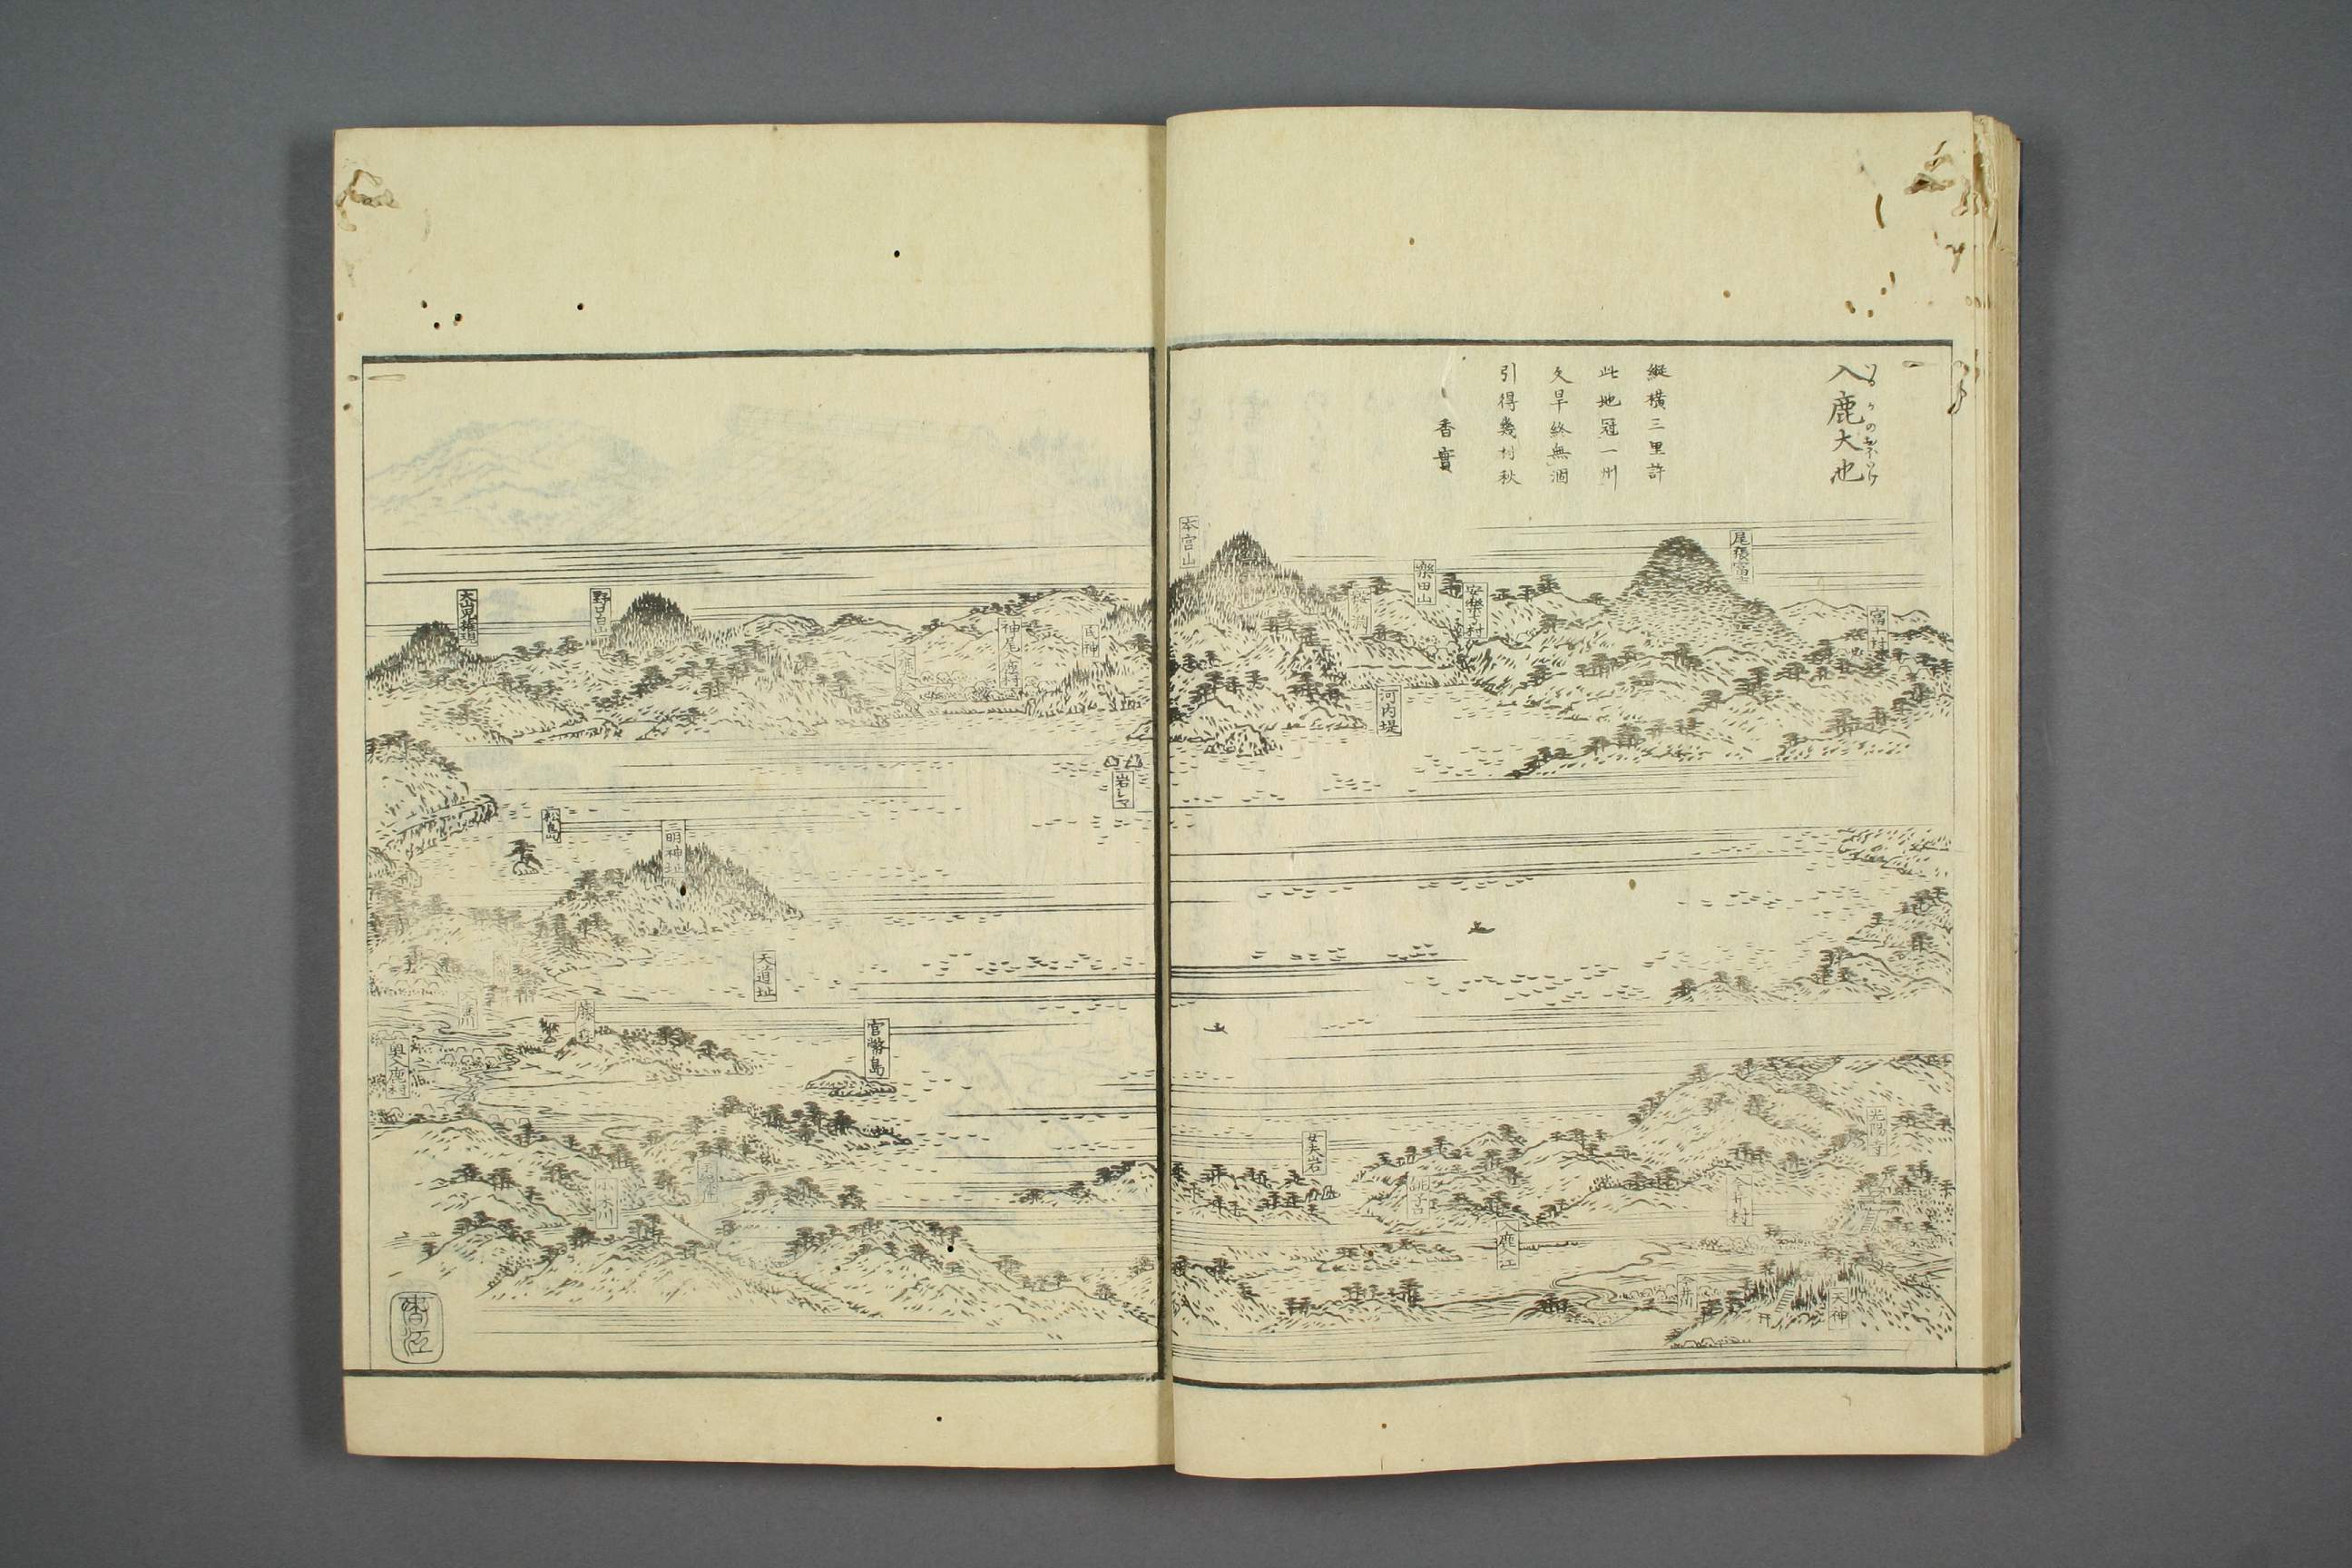 入鹿大池
縦横三里許
此地冠一州
久旱終無涸
引得幾村秋
香實
尾張富士
富士村
安樂寺村
樂田山
本宮山
河内堤
光陽寺
今井村
天神
今井川
入鹿江
女夫岩
氏神
神尾入鹿村
野口山
岩シマ
松島
三明神址
天道址
宮幣島
奥入鹿村
小木川